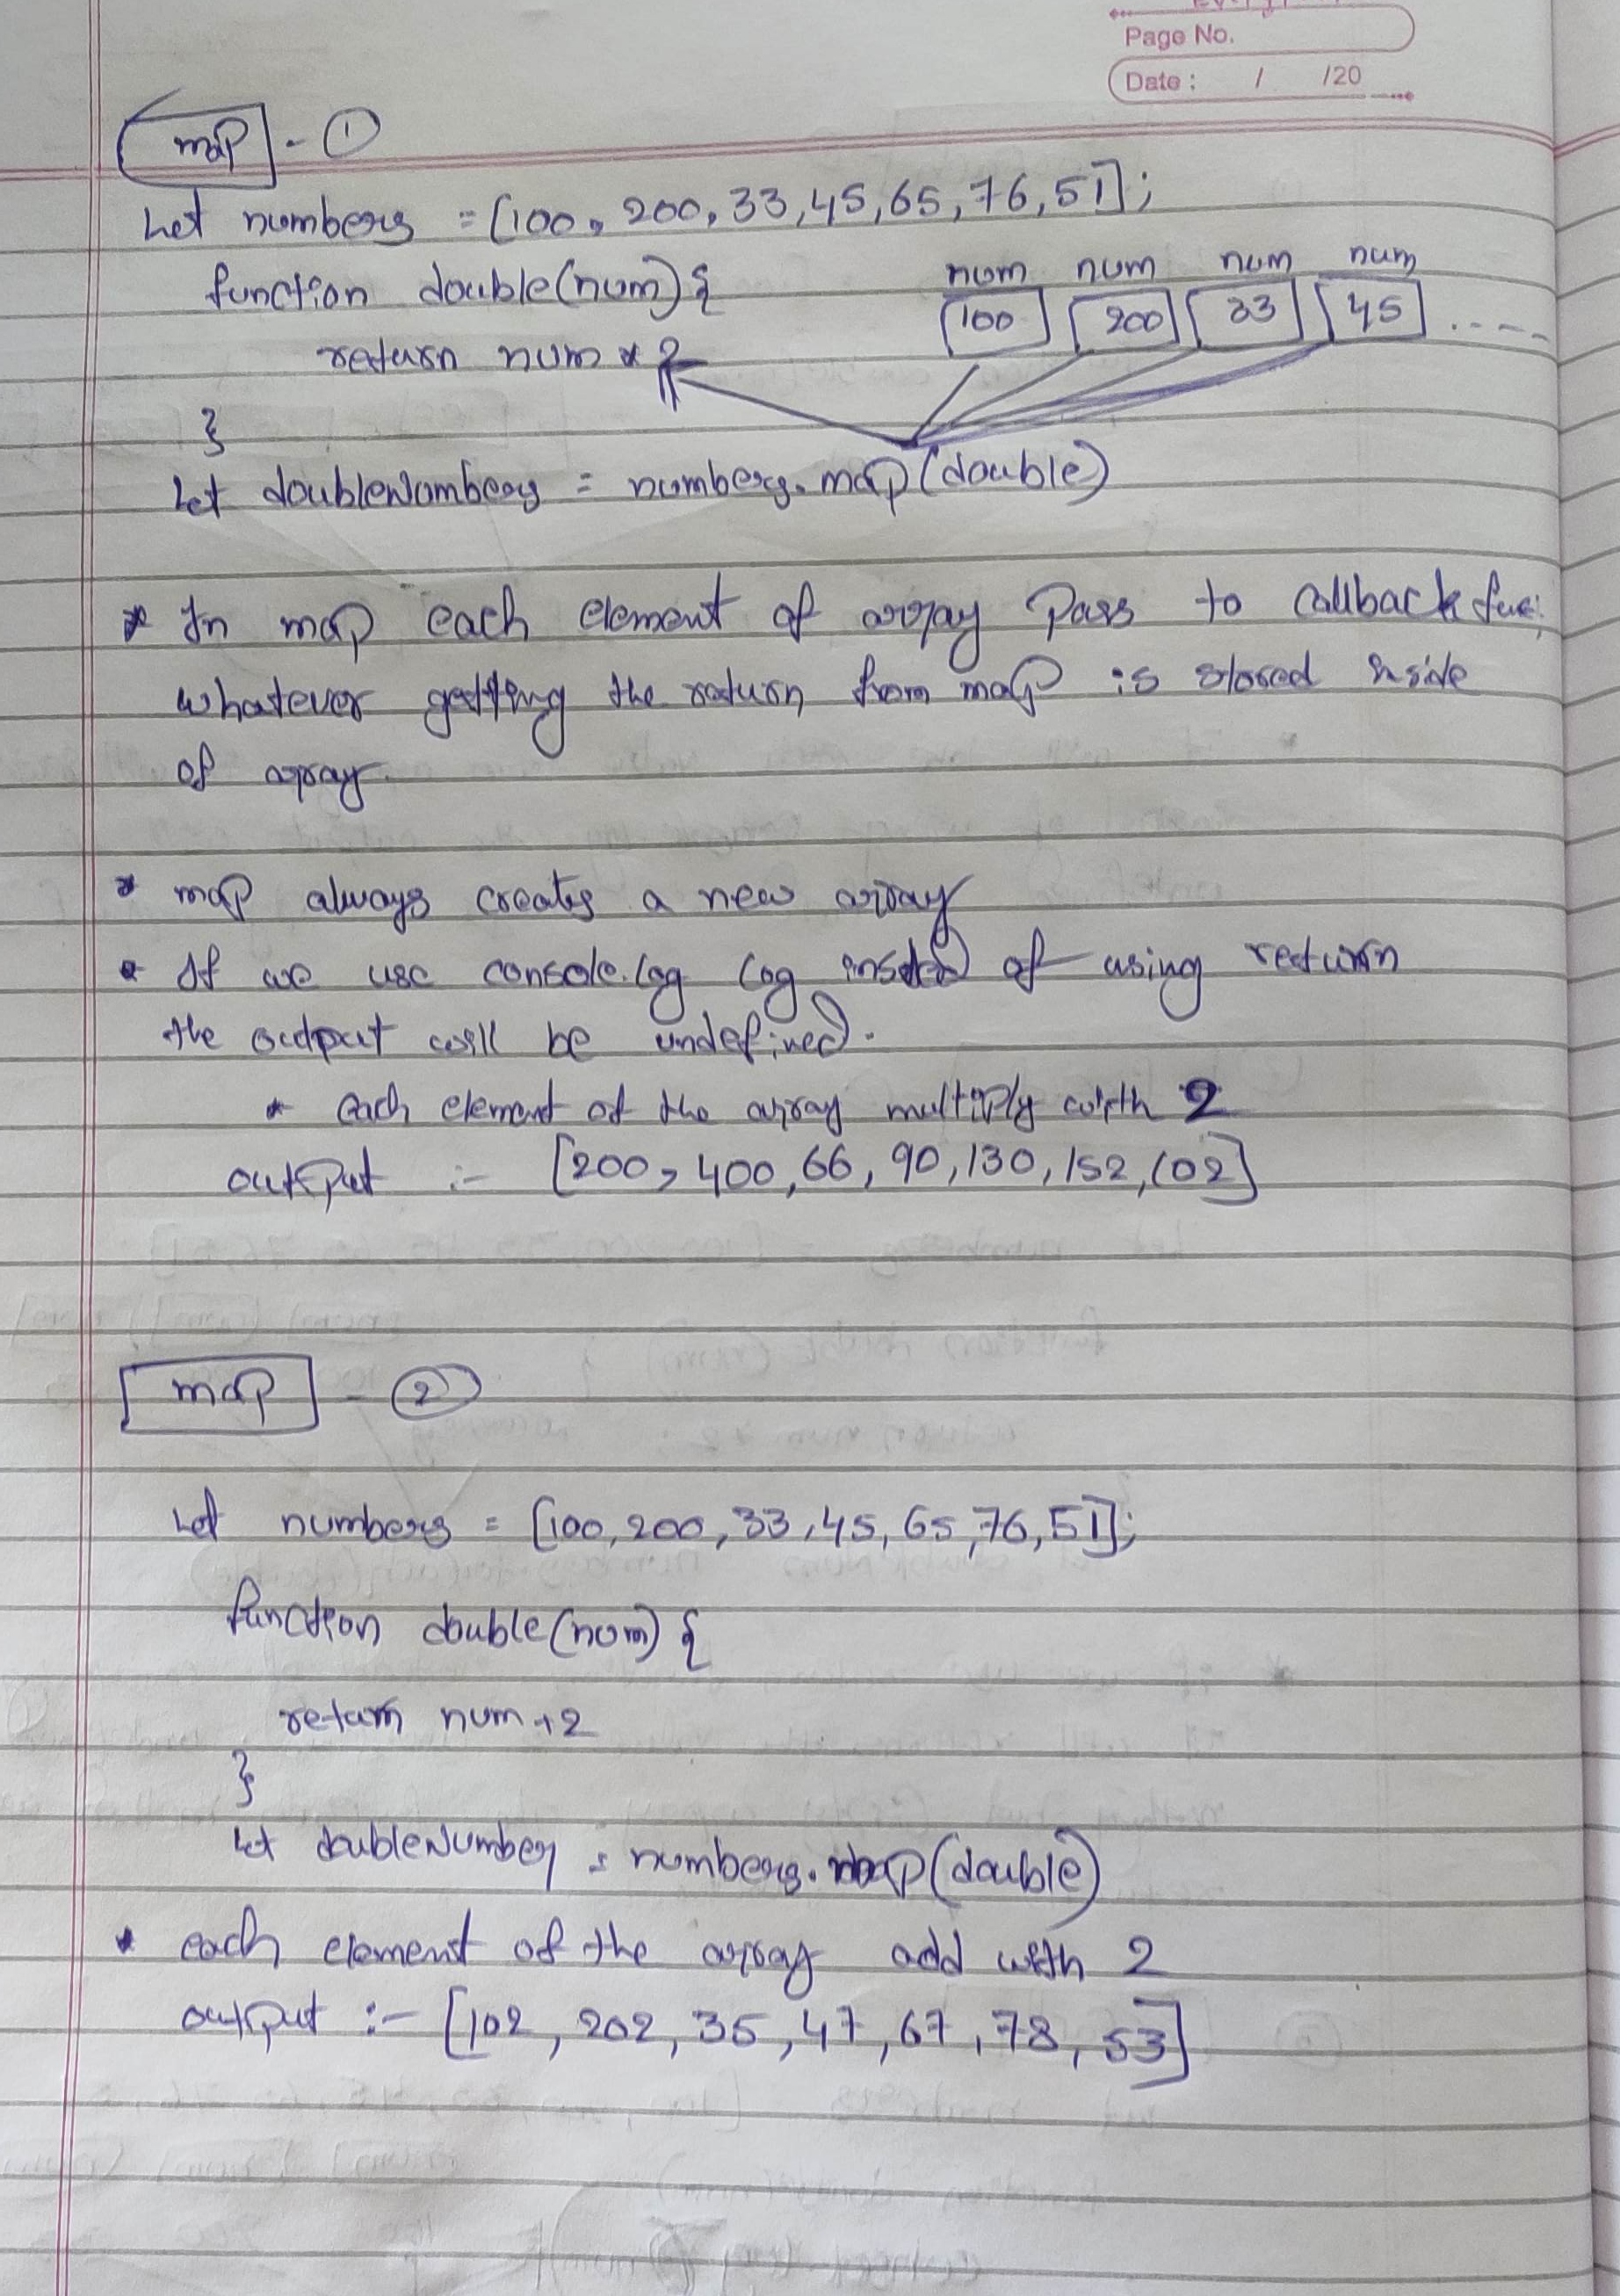 Page No.
Date : / /20
map - ①
Let numbers = [100, 200, 33, 45, 65, 76, 51];
function double(num) {
num num num num
100 200 33 45 .....
return num * 2
}
Let doubleNumbers = numbers.map(double)
* In map each element of array Pass to callback
whatever getting the return from map is stored inside
of array.
* map always creates a new array
* If we use console.log log insted of using return
the output will be undefined.
* each element of the array multiply with 2
output :- [200, 400, 66, 90, 130, 152, 102]
map - ②
Let numbers = [100, 200, 33, 45, 65, 76, 51];
function double(num) {
return num + 2
}
Let doubleNumber = numbers.map(double)
* each element of the array add with 2
output :- [102, 202, 35, 47, 67, 78, 53]